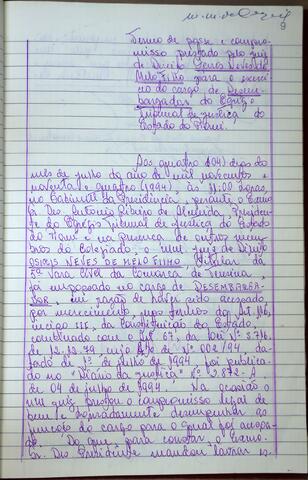 9
Termo de posse e compro-
misso prestado pelo Juiz
de Direito Osiris Neves de
Melo Filho para o exercí-
cio do cargo de Desem-
bargador do Egrégio
Tribunal de Justiça do
Estado do Piauí.
Aos quatro (04) dias do
mês de julho do ano de mil novecentos e
noventa e quatro (1994), às 11:00 horas,
no Gabinete da Presidência, perante o Exmo.
Sr. Des. Antonio Ribeiro de Almeida, Presiden-
te do Egrégio Tribunal de Justiça do Estado
do Piauí e na presença de outros mem-
bros do Colegiado, o MM. Juiz de Direito
OSIRIS NEVES DE MELO FILHO, titular da
5ª Vara Cível da Comarca de Teresina,
foi empossado no cargo de DESEMBARGA-
DOR, em razão de haver sido acessado,
por merecimento, nos termos do Art. 116,
inciso III, da Constituição do Estado,
combinado com o Art. 67, da Lei nº 3.716
de 12.12.79, cujo Ato de nº 002/94, da-
tado de 1º de julho de 1994, foi publica-
do no "Diário da Justiça" nº 2.872-A
de 04 de julho de 1994. Na ocasião o
MM. Juiz prestou o compromisso legal de
bem e honradamente desempenhar as
funções do cargo para o qual foi acessa-
do. Do que, para constar, o Exmo.
Sr. Des. Presidente mandou lavrar o